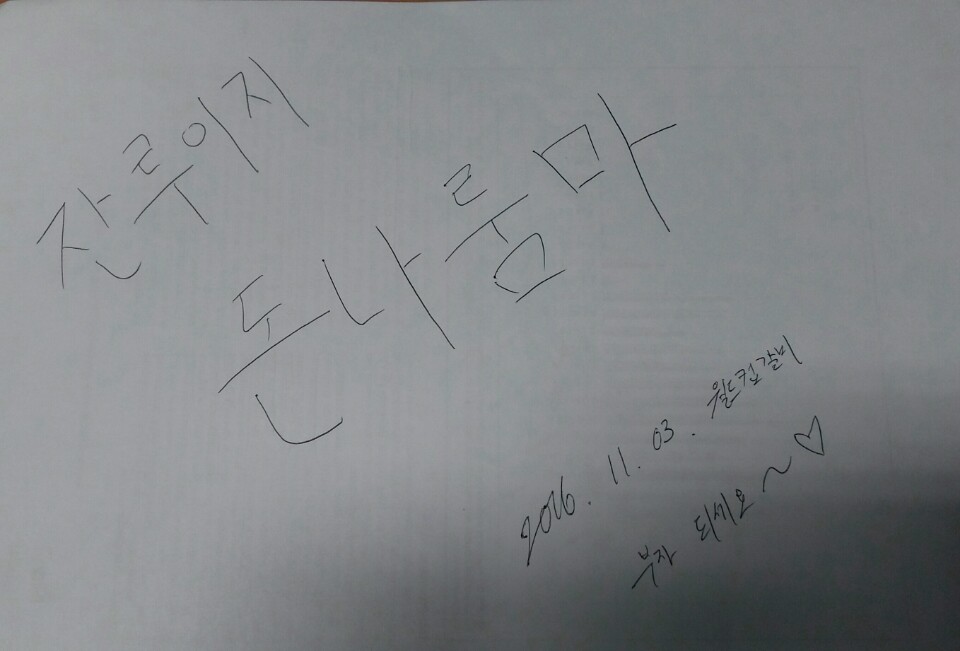 잔루이지
돈나룸마
2016. 11. 03. 월드컵갈비
부자 되세요~♡